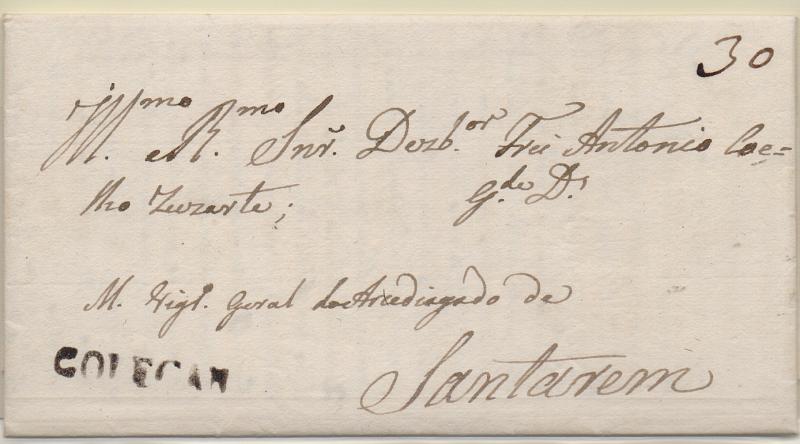 30
Ill.mo R.mo Snr. Dezb.or Frei Antonio Coe=
lho Zuzarte; G.de D.s
M. Vig.o Geral do Arcediagado de
Santarem
GOLEGAN